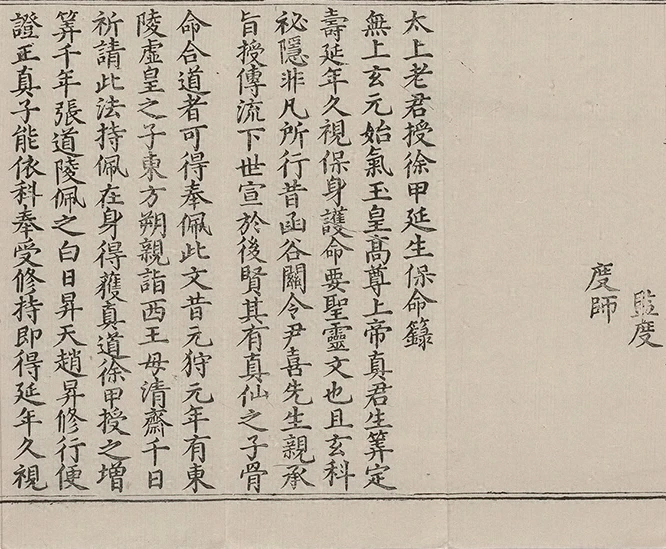 監度
度師
太上老君授徐甲延生保命籙
無上玄元始氣玉皇高尊上帝真君生筭定
壽延年久視保身護命要聖靈文也且玄科
祕隱非凡所行昔函谷關令尹喜先生親承
旨授傳流下世宣於後賢其有真仙之子骨
命合道者可得奉佩此文昔元狩元年有東
陵虛皇之子東方朔親詣西王母清齋千日
祈請此法持佩在身得獲真道徐甲授之增
筭千年張道陵佩之白日昇天趙昇修行便
證正真子能依科奉受修持即得延年久視